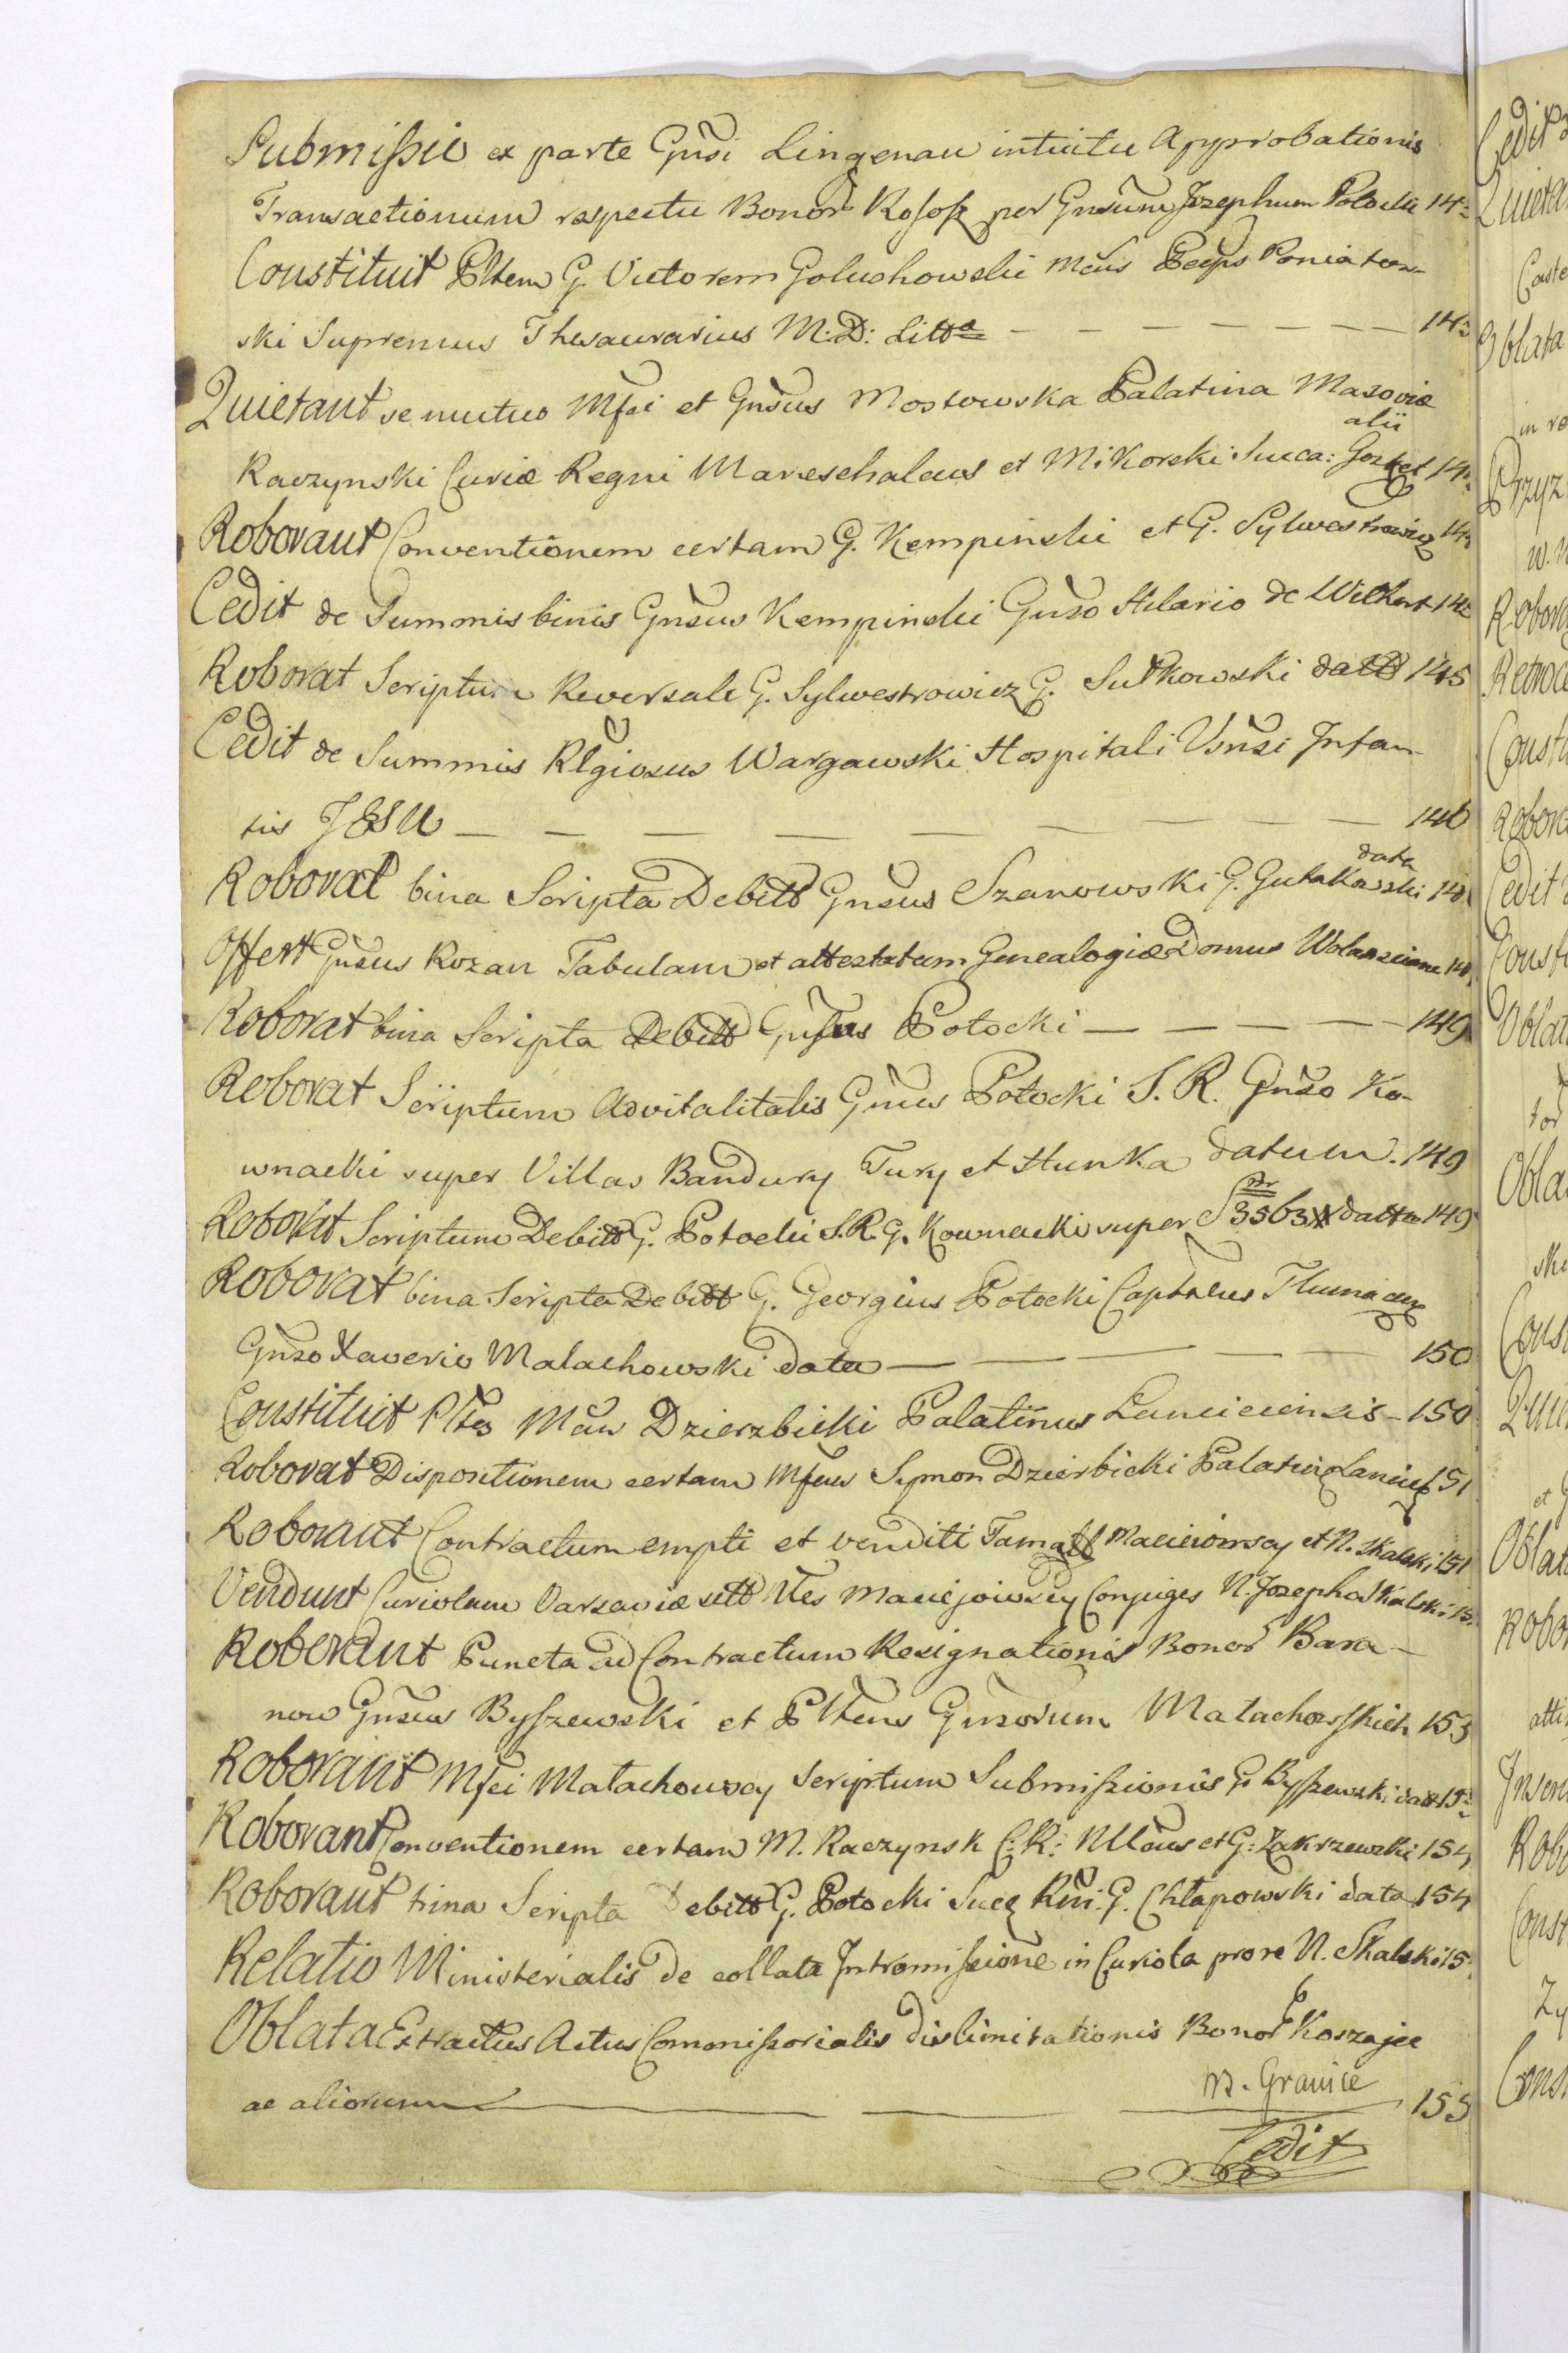 Submissio ex parte Gnsi Lingenau intuitu Approbationis
Transactionum respectu Bonor Rososz per Gnsum Jozephum Potocki 14
Constituit Pltem G. Victorem Goluchowski Mcus Pceps Poniatow-
ski Supremus Thesaurarius M: D: Litt
14
Quietant se mutuo Mfci et Gnsus Mostowska Palatina Mazoviæ
alii
Raczynski Curiæ Regni Mareschalcus et Mikorski Succa:
Roborant Conventionem certam G. Kempinski et G. Sylwestrowicz 14
Cedit de Summis binis Gnsus Kempinski Gnso Hilario de 14
Roborat Scriptum Reversale G. Sylwestrowicz G. Sułkowski datt 145
Cedit de Summis Rlgiosus Wargawski Hospitali Vrnsi Infan-
tis JESU 146
Roborat bina Scripta Debitt Gnsus Szanowski G. Gutakowski data 14
Offert Gnsus Rozan Tabulam et attestatum Genealogiæ Domus 14
Roborat bina Scripta Debitt Gnsus Potocki 149
Roborat Scriptum Advitalitatis Gnsus Potocki S. R. Gnso Ko-
wnacki super Villas Bandury Tury et Hunka datum. 149
Roborat Scriptum Debitt G. Potocki S. R. G. Kownacki super S 3563 # datta 149
Roborat bina Scripta Debitt G. Georgius Potocki Captneus Tlumacen
Gnso Xaverio Malachowski data 150
Constituit Pltes Mcus Dzierzbicki Palatinus Lanciciensis 150
Roborat Dispositionem certam Mfcus Symon Dzierbicki Palatin Lancic 151
Roborant Contractum empti et venditi Famatt Macieiowscy et N. Skalski 151
Vendunt Curiolam Varsaviæ sitt Ntes Maciejowscy Conjuges N. Jozepho Skalski 15
Roborant Puncta ad Contractum Resignationis Bonor Bara-
now Gnsus Byszewski et Pltens Gnsorum Małachowskich 153
Roborant Mfci Małachowscy Scriptum Submissionis G. Byszewski datt 15
Roborant Conventionem certam M. Raczynsk C: R: Mlcus et G: Zakrzewski 154
Roborant trina Scripta Debitt G. Potocki Succ Rni. G. Chłapowski data 154
Relatio Ministerialis de collata Intromissione in Curiola pro re N. Skalski 15
Oblata Extractus Actus Commissorialis dislimitationis Bonor Koszajec
ac aliorum
M. Granice
155
Cedit